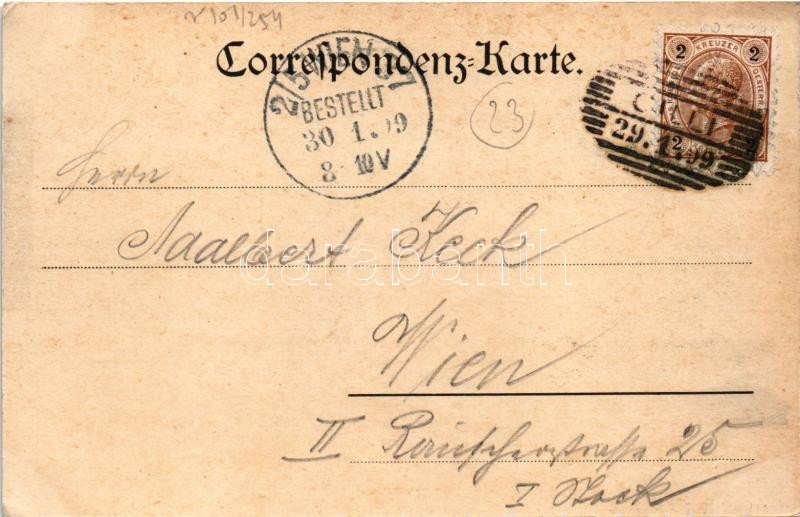 Correspondenz-Karte.
2/5 WIEN 57
BESTELLT
30 1. 99
8·10V
23
2 KREUZER 2
CILLI
29.1.99
2
Herrn
Adalbert Keck
darabanth
Wien
II Rauscherstrasse 25
I Stock